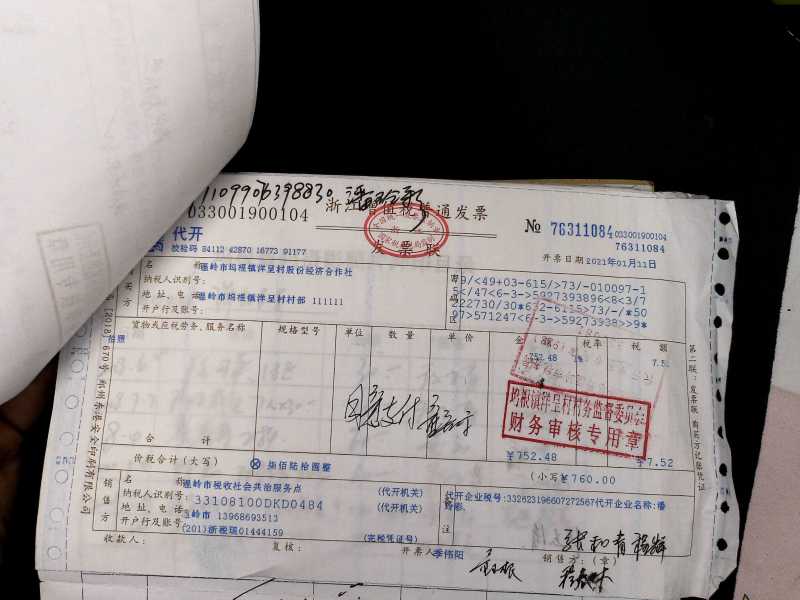 033001900104
普通发票
发票联
№ 76311084
033001900104
76311084
代开
校验码 84112 42870 16773 91177
开票日期 2021年01月11日
购买方
名称
温岭市坞根镇洋呈村股份经济合作社
纳税人识别号:
地址、电话
温岭市坞根镇洋呈村村部 111111
开户行及账号:
密码区
货物或应税劳务、服务名称
规格型号
单位
数量
单价
金额
税率
税额
拍照
752.48
1%
7.52
坞根镇洋呈村村务监督委员会
财务审核专用章
合计
¥752.48
¥7.52
价税合计(大写)
⊗ 柒佰陆拾圆整
(小写)¥760.00
销售方
名称
温岭市税收社会共治服务点
(代开机关)
纳税人识别号:
33108100DKD0484
(代开机关)
地址、电话
温岭市 13968693513
开户行及账号
(201)浙税现01444159
(完税凭证号)
备注
代开企业税号:332623196607272567代开企业名称:潘
收款人:
复核:
开票人
季伟阳
销售方:(章)
第二联:发票联 购买方记账凭证